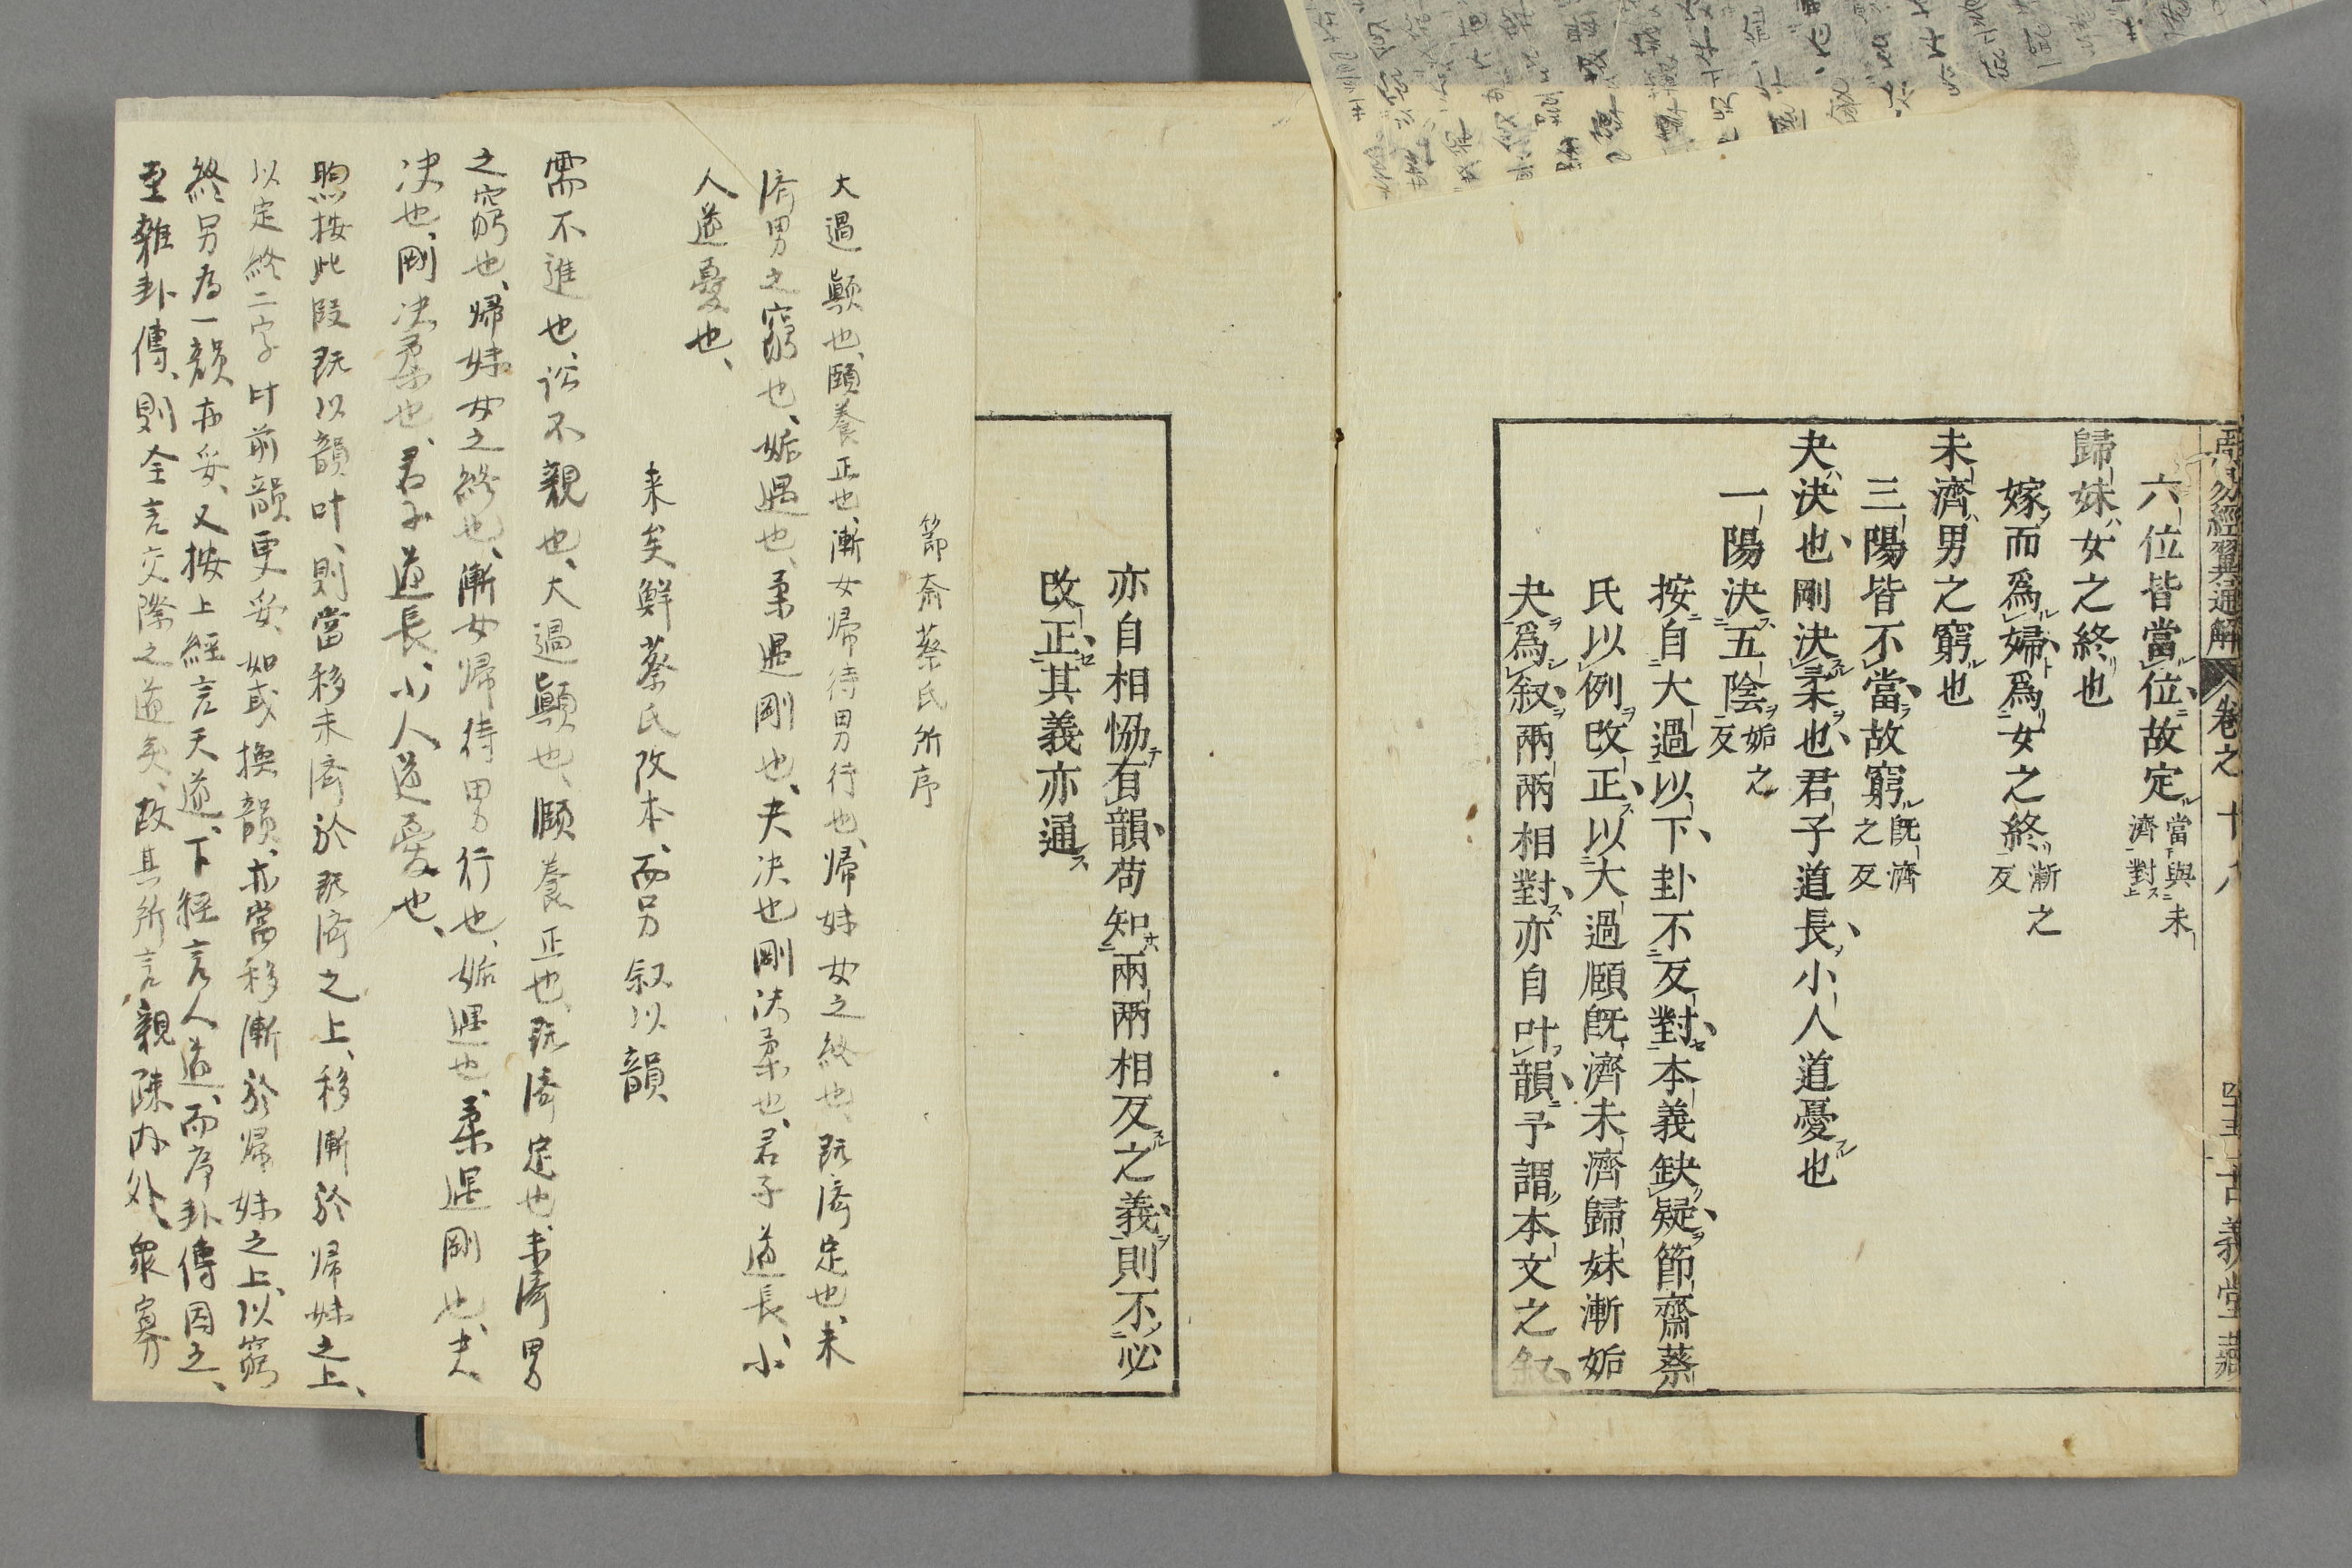 周易經翼通解 卷之十八 古義堂藏
六位皆當位故定當與未濟對上
歸妹女之終也
嫁而爲婦爲女之終漸之反
未濟男之窮也
三陽皆不當故窮既濟之反
夬決也剛決柔也君子道長小人道憂也
一陽決五陰姤之反
按自大過以下卦不反對本義缺疑節齋蔡
氏以例改正以大過頤既濟未濟歸妹漸姤
夬爲叙兩兩相對亦自叶韻予謂本文之叙
亦自相恊有韻苟知兩兩相反之義則不必
改正其義亦通
節斎蔡氏所序
大過顚也、頤養正也、漸女帰待男行也、帰妹女之終也、既済定也、未
済男之窮也、姤遇也、柔遇剛也、夬決也剛決柔也、君子道長、小
人道憂也、
来矣鮮蔡氏改本、而另叙以韻
需不進也、訟不親也、大過顚也、頤養正也、既済定也、未済男
之窮也、帰妹女之終也、漸女帰待男行也、姤遇也、柔遇剛也、夬
决也、剛决柔也、君子道長、小人道憂也、
煦按此段既以韻叶、則當移未済於既済之上、移漸於帰妹之上、
以定終二字叶前韻更妥、如或換韻、亦當移漸於帰妹之上、以窮
終另為一韻亦妥、又按上經言天道、下経言人道、而序卦傳因之、
至雜卦傳、則全言交際之道矣、故其所言、親疎内外、衆寡